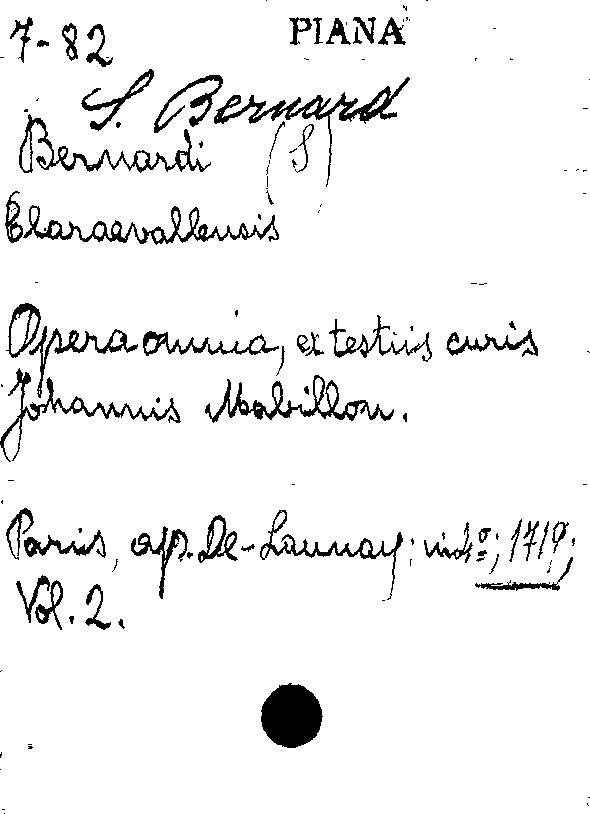 7-82 PIANA
S. Bernard
Bernardi (S)
Claraevallensis
Opera omnia, ex testiis curis
Johannis Mabillon.
Paris, ap. De-Launay; in 4º; 1719;
Vol. 2.